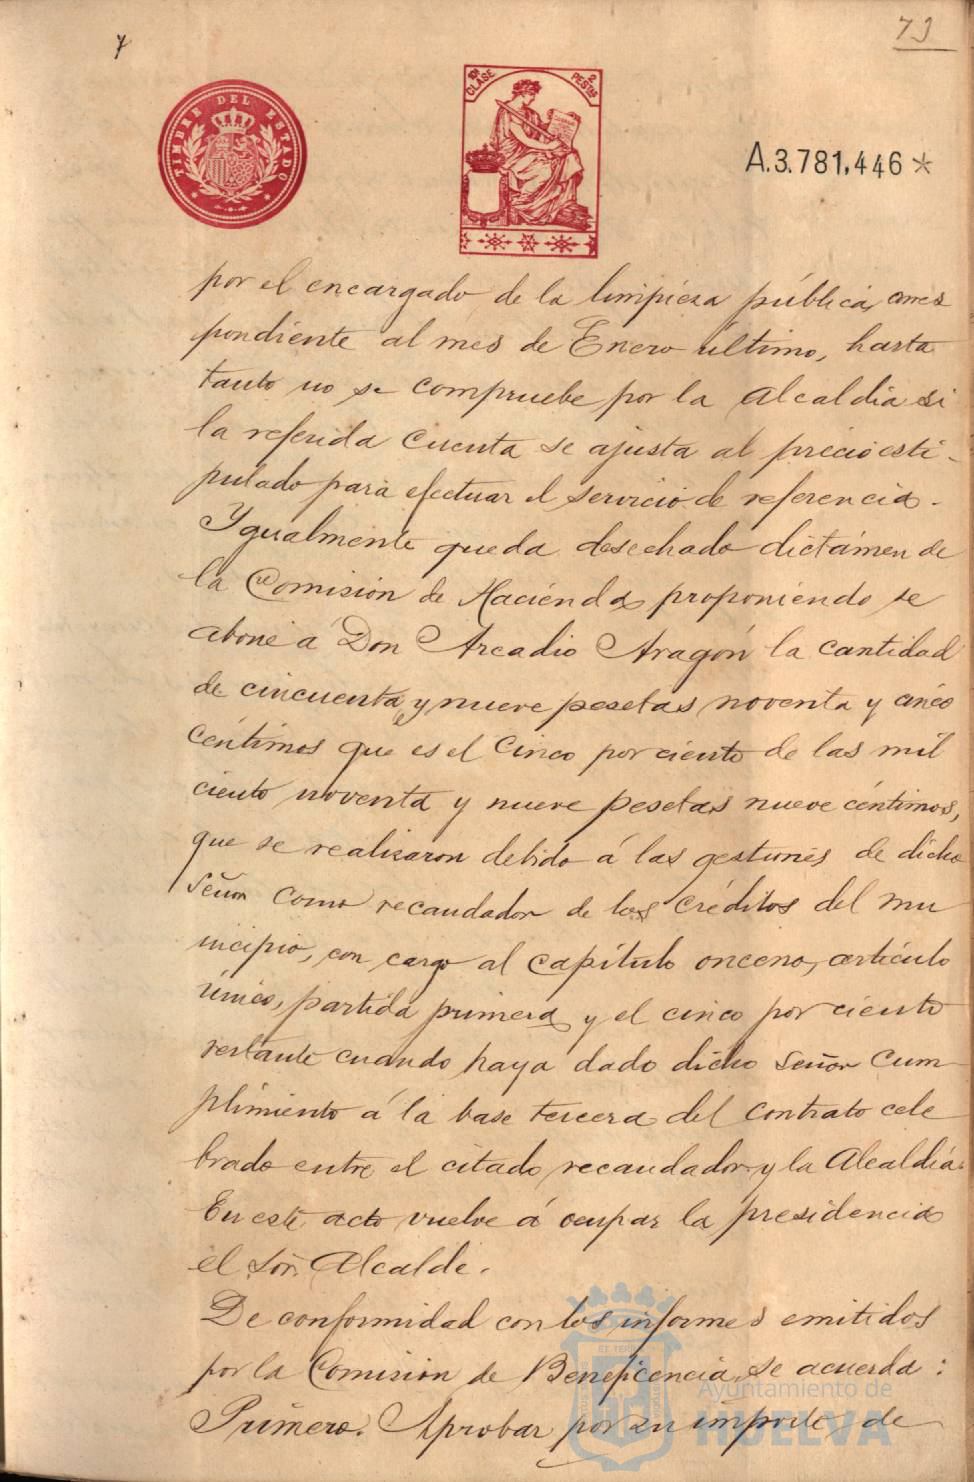 73
TIMBRE DEL ESTADO
CLASE
2 PESTAS
A.3.781,446*
por el encargado de la limpieza pública, corres
pondiente al mes de Enero último, hasta
tanto no se compruebe por la Alcaldía si
la referida cuenta se ajusta al precio esti-
pulado para efectuar el servicio de referencia.
Ygualmente queda desechado dictámen de
la Comisión de Hacienda proponiendo se
abone á Don Arcadio Aragón la cantidad
de cincuenta y nueve pesetas noventa y cinco
céntimos que es el cinco por ciento de las mil
ciento noventa y nueve pesetas nueve céntimos,
que se realizaron debido á las gestiones de dicho
Señor como recaudador de los créditos del mu
nicipio, con cargo al capítulo onceno, artículo
único, partida primera y el cinco por ciento
restante cuando haya dado dicho Señor cum-
plimiento á la base tercera del contrato cele
brado entre el citado recaudador y la Alcaldía.
En este acto vuelve á ocupar la presidencia
el Sor. Alcalde.
De conformidad con los informes emitidos
por la Comisión de Beneficencia, se acuerda:
Primero. Aprobar por su importe de
Ayuntamiento de
HUELVA